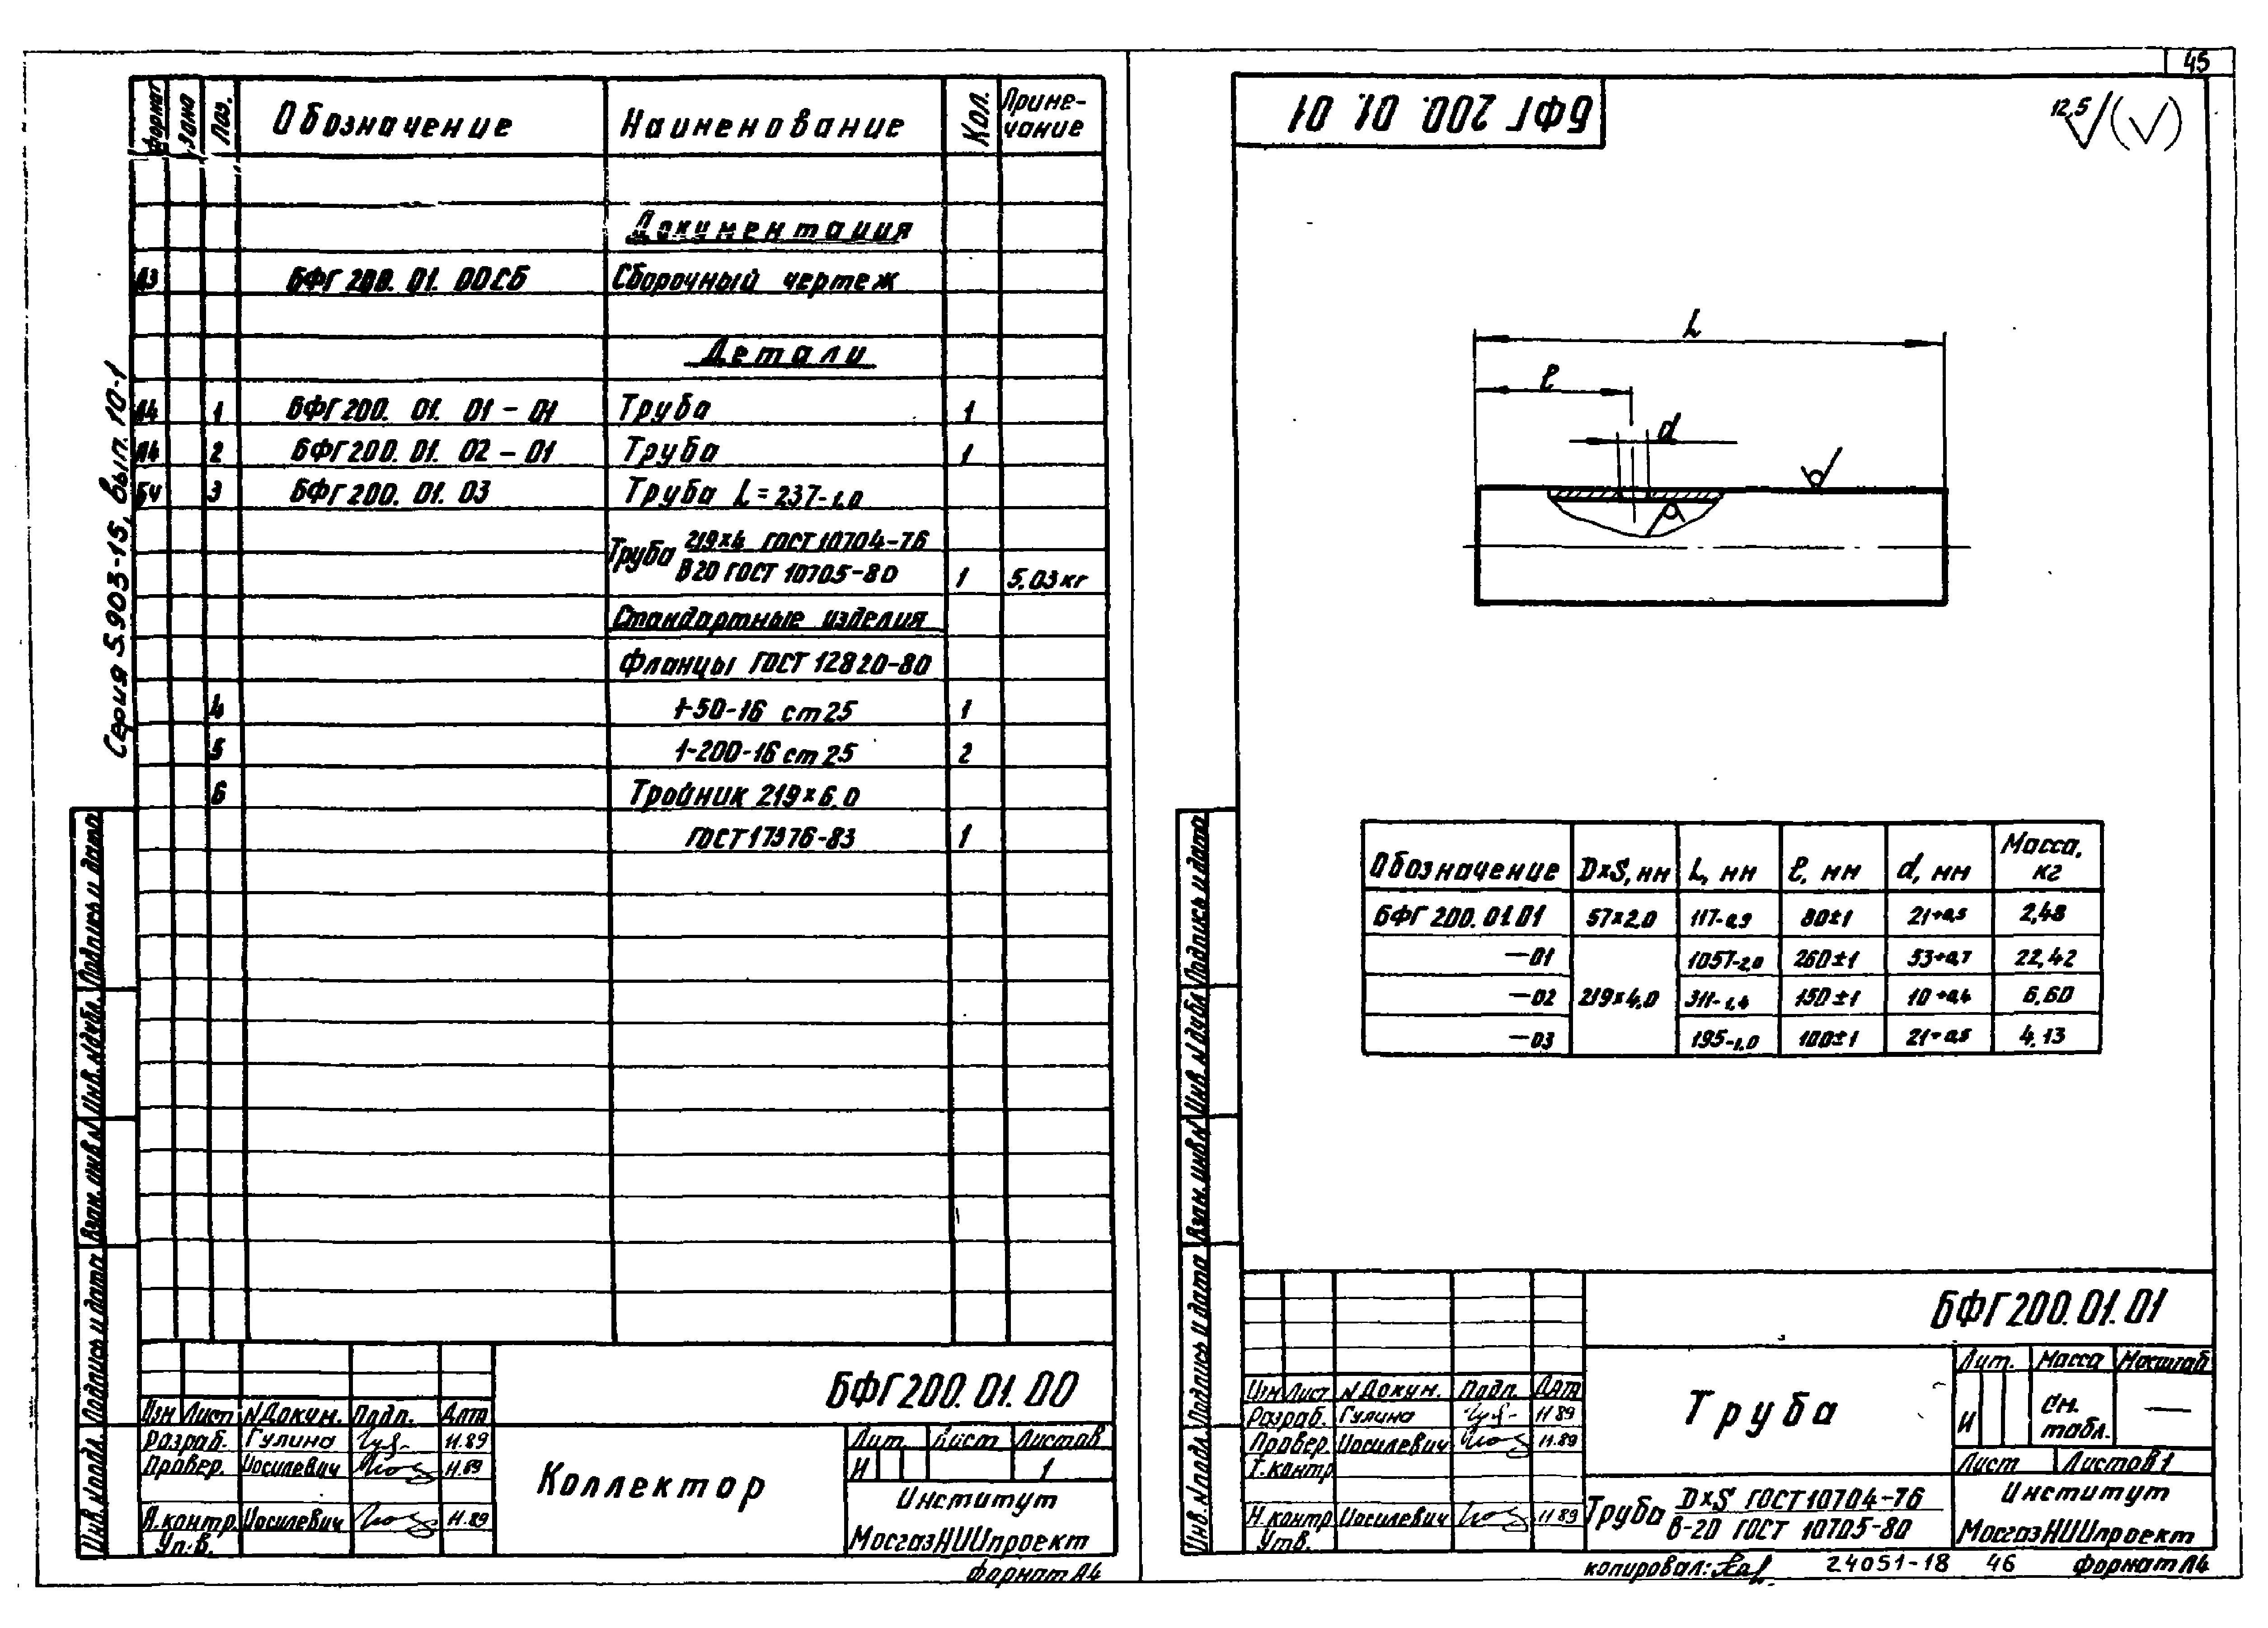 45
Серия 5.903-15, вып. 10-1
Формат Зона Поз. Обозначение Наименование Кол. Приме-
чание
Документация
А3 БФГ 200. 01. 00СБ Сборочный чертеж
Детали
А4 1 БФГ 200. 01. 01-01 Труба 1
А4 2 БФГ 200. 01. 02-01 Труба 1
БЧ 3 БФГ 200. 01. 03 Труба L=237-1,0
Труба 219×4 ГОСТ 10704-76
В20 ГОСТ 10705-80 1 5,03кг
Стандартные изделия
Фланцы ГОСТ 12820-80
4 1-50-16 ст25 1
5 1-200-16 ст25 2
6 Тройник 219×6,0
ГОСТ 17376-83 1
Подпись и дата
Инв. № дубл.
Взам. инв №
Подпись и дата
Инв. № подл.
БФГ200.01.00
Изм Лист № Докум. Подп. Дата
Разраб. Гулина 11.89
Провер. Иосилевич 11.89
Н.контр. Иосилевич 11.89
Утв.
Коллектор
Лит. Лист Листов
И 1
Институт
МосгазНИИпроект
формат А4
БФГ 200. 01. 01
12,5 (√)
L
ℓ
d
Обозначение D×S, мм L, мм ℓ, мм d, мм Масса, кг
БФГ 200.01.01 57×2,0 117-0,9 80±1 21+0,5 2,48
-01 219×4,0 1057-2,0 260±1 53+0,7 22,42
-02 311-1,4 150±1 10+0,4 6,60
-03 195-1,0 100±1 21+0,5 4,13
Подпись и дата
Инв. № дубл
Взам. инв №
Подпись и дата
Инв. № подл.
БФГ200.01.01
Изм Лист № Докум. Подп. Дата
Разраб. Гулина 11.89
Провер. Иосилевич 11.89
Т.контр
Н.контр Иосилевич 11.89
Утв.
Труба
Лит. Масса Масштаб
И см. табл. —
Лист Листов 1
Труба D×S ГОСТ 10704-76
В-20 ГОСТ 10705-80
Институт
МосгазНИИпроект
копировал: 24051-18 46 формат А4